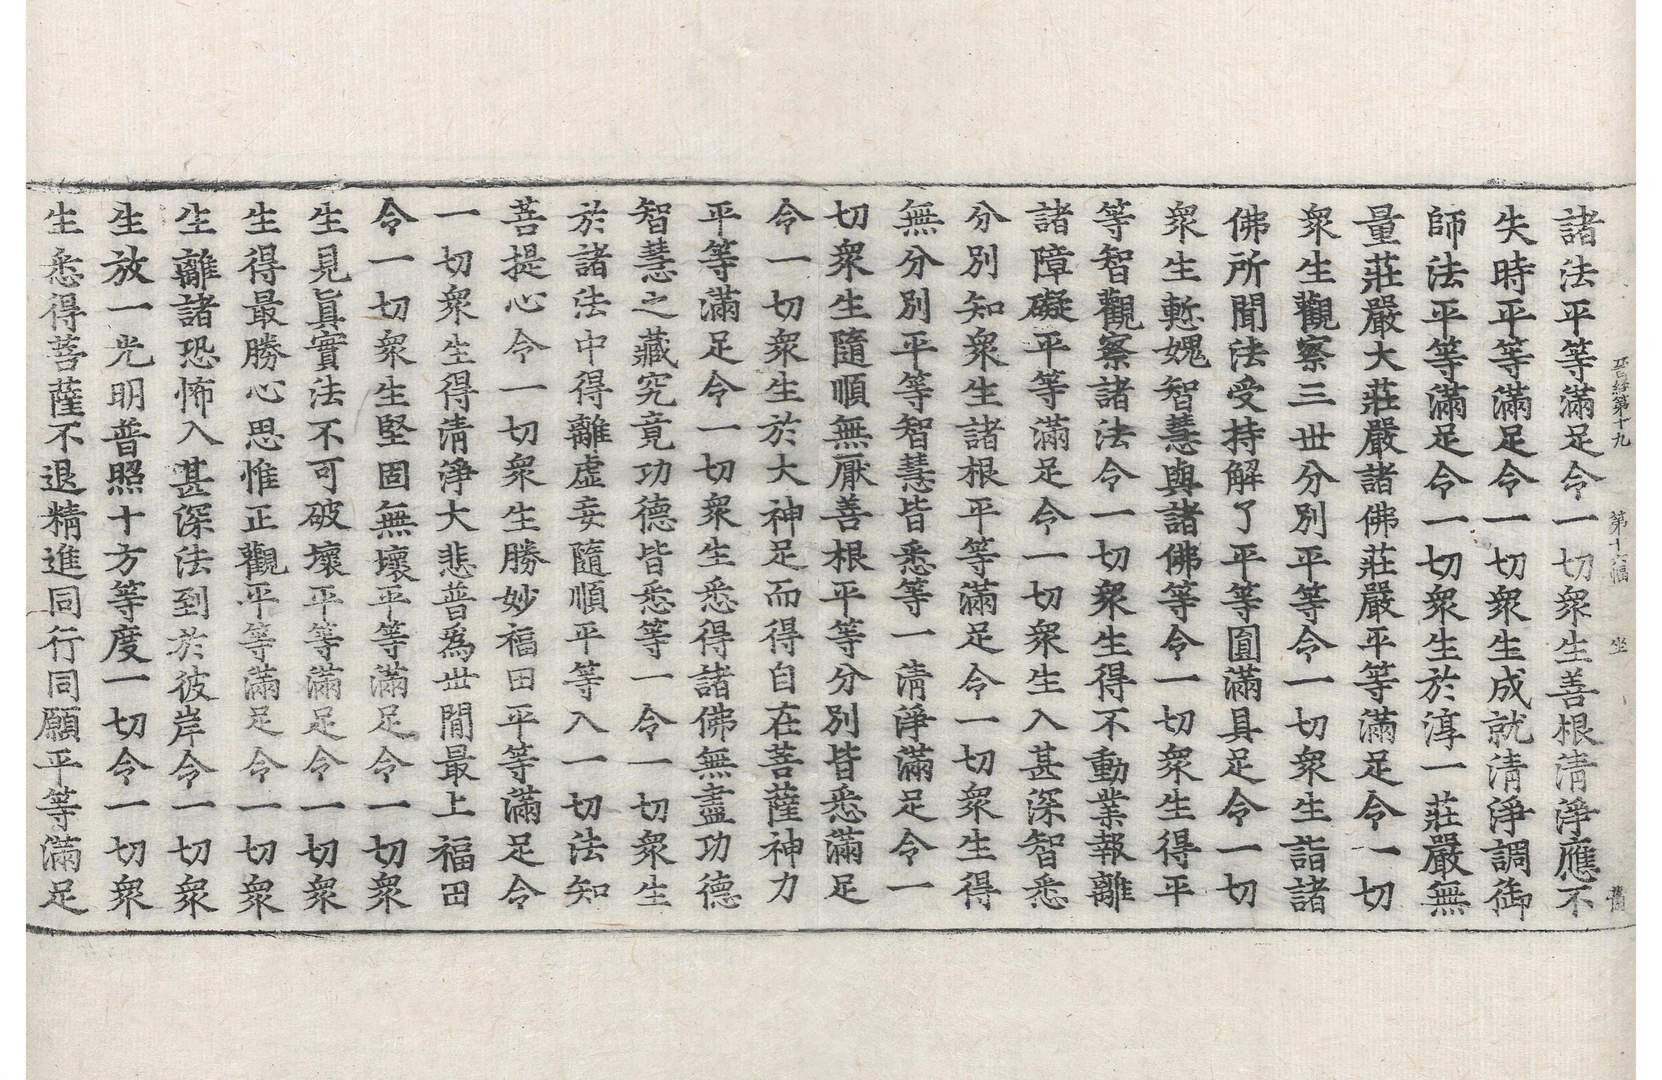 晉經第十九　第十六幅　坐
諸法平等滿足令一切衆生善根清淨應不
失時平等滿足令一切衆生成就清淨調御
師法平等滿足令一切衆生於淳一莊嚴無
量莊嚴大莊嚴諸佛莊嚴平等滿足令一切
衆生觀察三世分別平等令一切衆生詣諸
佛所聞法受持解了平等圓滿具足令一切
衆生慙愧智慧與諸佛等令一切衆生得平
等智觀察諸法令一切衆生得不動業報離
諸障礙平等滿足令一切衆生入甚深智悉
分別知衆生諸根平等滿足令一切衆生得
無分別平等智慧皆悉等一清淨滿足令一
切衆生隨順無厭善根平等分別皆悉滿足
令一切衆生於大神足而得自在菩薩神力
平等滿足令一切衆生悉得諸佛無盡功德
智慧之藏究竟功德皆悉等一令一切衆生
於諸法中得離虛妄隨順平等入一切法知
菩提心令一切衆生勝妙福田平等滿足令
一切衆生得清淨大悲普爲世閒最上福田
令一切衆生堅固無壞平等滿足令一切衆
生見眞實法不可破壞平等滿足令一切衆
生得最勝心思惟正觀平等滿足令一切衆
生離諸恐怖入甚深法到於彼岸令一切衆
生放一光明普照十方等度一切令一切衆
生悉得菩薩不退精進同行同願平等滿足